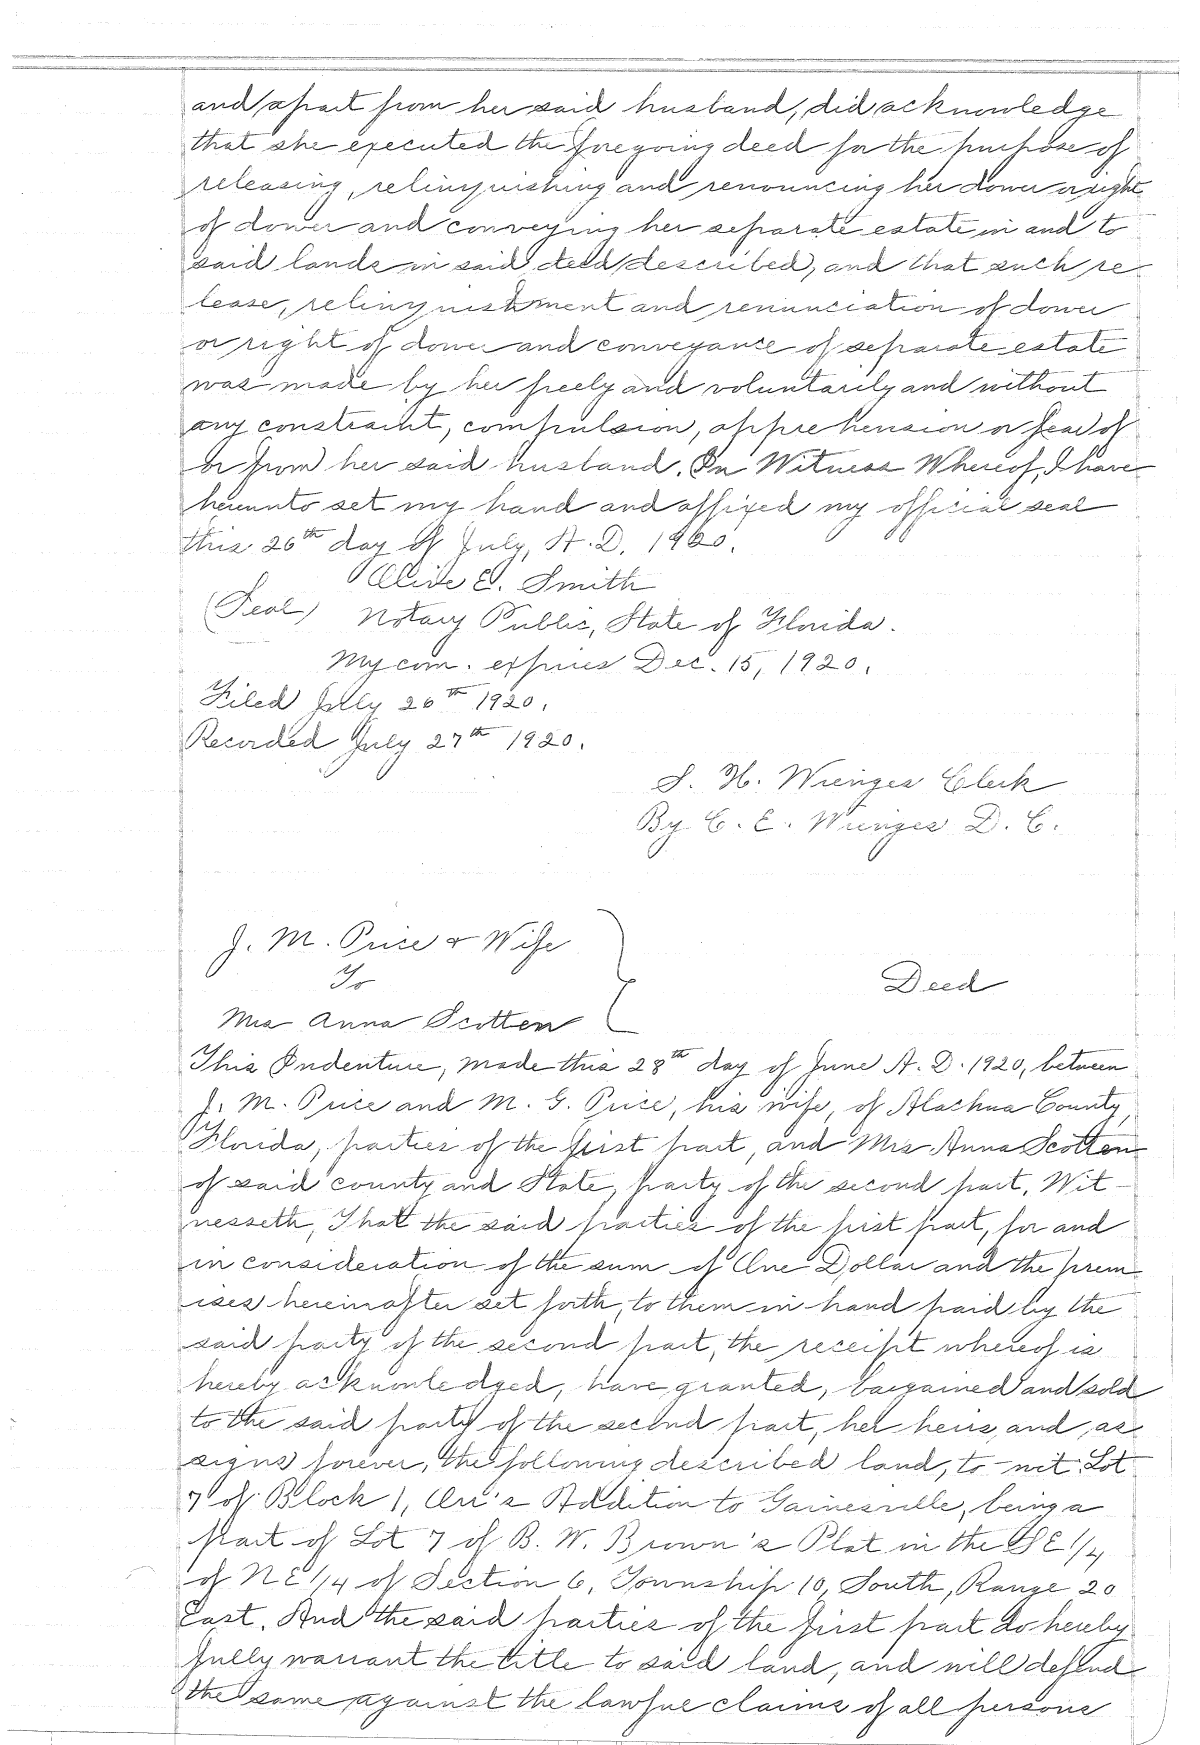 and apart from her said husband, did acknowledge
that she executed the foregoing deed for the purpose of
releasing, relinquishing and renouncing her dower or right
of dower and conveying her separate estate in and to
said lands in said deed described, and that such re-
lease, relinquishment and renunciation of dower
or right of dower and conveyance of separate estate
was made by her freely and voluntarily and without
any constraint, compulsion, apprehension or fear of
or from her said husband. In Witness Whereof, I have
hereunto set my hand and affixed my official seal
this 26th day of July, A.D. 1920.
Olive E. Smith
(Seal) Notary Public, State of Florida.
My com. expires Dec. 15, 1920.
Filed July 26th 1920.
Recorded July 27th 1920.
S. H. Wienges Clerk
By C. E. Wienges D. C.
J. M. Price & Wife
To
Deed
Mrs Anna Scotten
This Indenture, made this 28th day of June A. D. 1920, between
J. M. Price and M. G. Price, his wife, of Alachua County,
Florida, parties of the first part, and Mrs Anna Scotten
of said county and State, party of the second part, Wit-
nesseth, That the said parties of the first part, for and
in consideration of the sum of One Dollar and the prem
ises hereinafter set forth, to them in hand paid by the
said party of the second part, the receipt whereof is
hereby acknowledged, have granted, bargained and sold
to the said party of the second part, her heirs and as-
signs forever, the following described land, to-wit: Lot
7 of Block 1, Orr's Addition to Gainesville, being a
part of Lot 7 of B. W. Brown's Plat in the SE 1/4
of NE 1/4 of Section 6, Township 10, South, Range 20
East. And the said parties of the first part do hereby
fully warrant the title to said land, and will defend
the same against the lawful claims of all persons